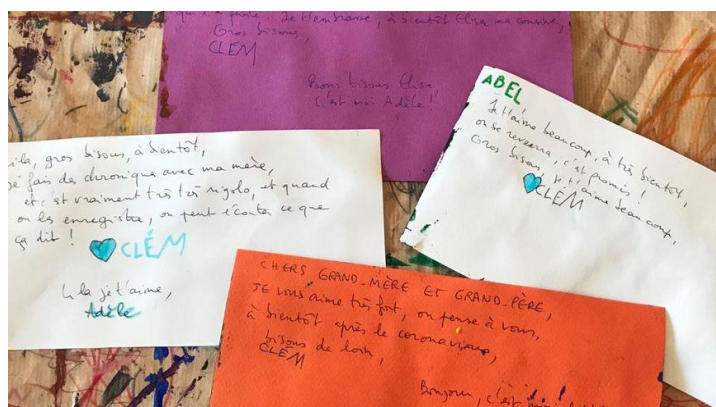 Je t'embrasse, à bientôt Elisa ma cousine,
Gros bisous,
CLÉM
Bons bisous Elisa,
C'est moi Adèle !
ABEL
Je t'aime beaucoup, à très bientôt,
on se reverra, c'est promis !
Gros bisous, je t'aime beaucoup,
CLÉM
gros bisous, à bientôt,
je fais des chronique avec ma mère,
et c'est vraiment très très rigolo, et quand
on les enregistra, on peut écouter ce que
ça dit !
CLÉM
Lila je t'aime,
Adèle
CHERS GRAND-MÈRE ET GRAND-PÈRE,
JE vous aime très fort, on pense à vous,
à bientôt après le coronavirus,
bisous de loin,
CLÉM
Bonjour, c'est moi